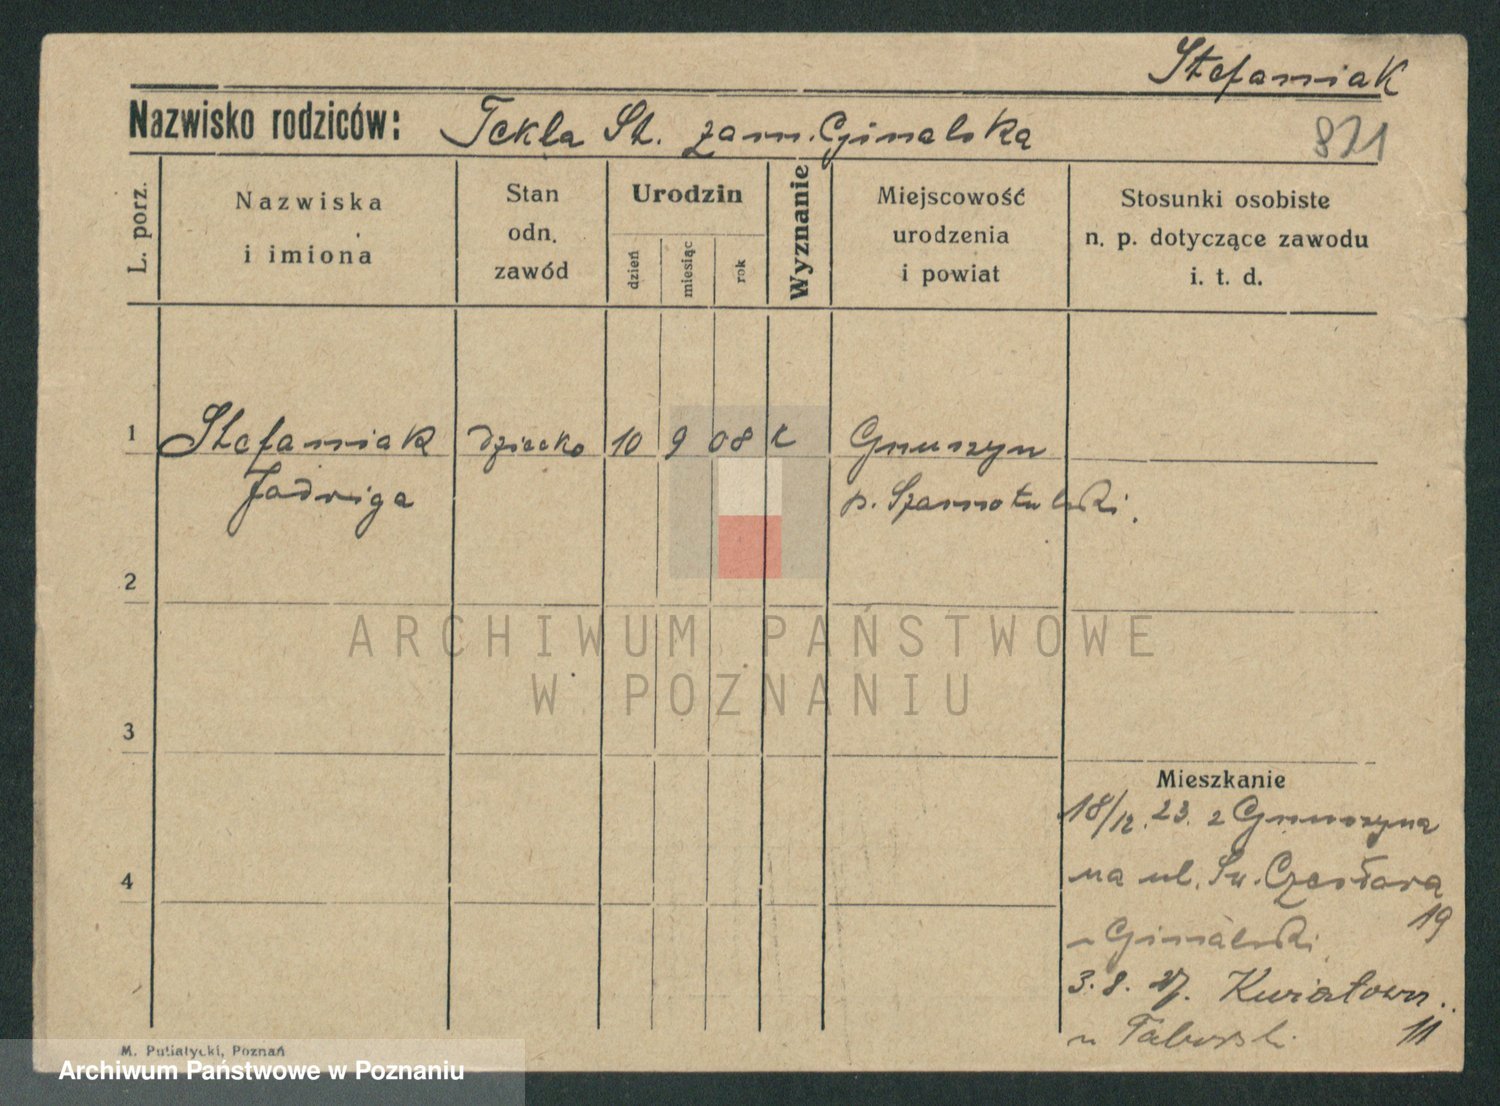 Stefaniak
Nazwisko rodziców: Tekla St. zam. Gimalska
871
L. porz.
Nazwiska
i imiona
Stan
odn.
zawód
Urodzin
dzień
miesiąc
rok
Wyznanie
Miejscowość
urodzenia
i powiat
Stosunki osobiste
n. p. dotyczące zawodu
i. t. d.
1
Stefaniak dziecko 10 9 08 k Gnuszyn
Jadwiga p. Szamotulski.
2
ARCHIWUM PAŃSTWOWE
W POZNANIU
3
Mieszkanie
18/12. 23. z Gnuszyna
4
na ul. Św. Czesława
19
u Gimalski
3. 8. 27. Kwiatow.
u Taborski 11
M. Putiatycki, Poznań
Archiwum Państwowe w Poznaniu